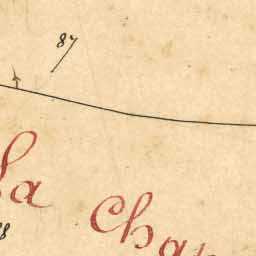 87
la Chap